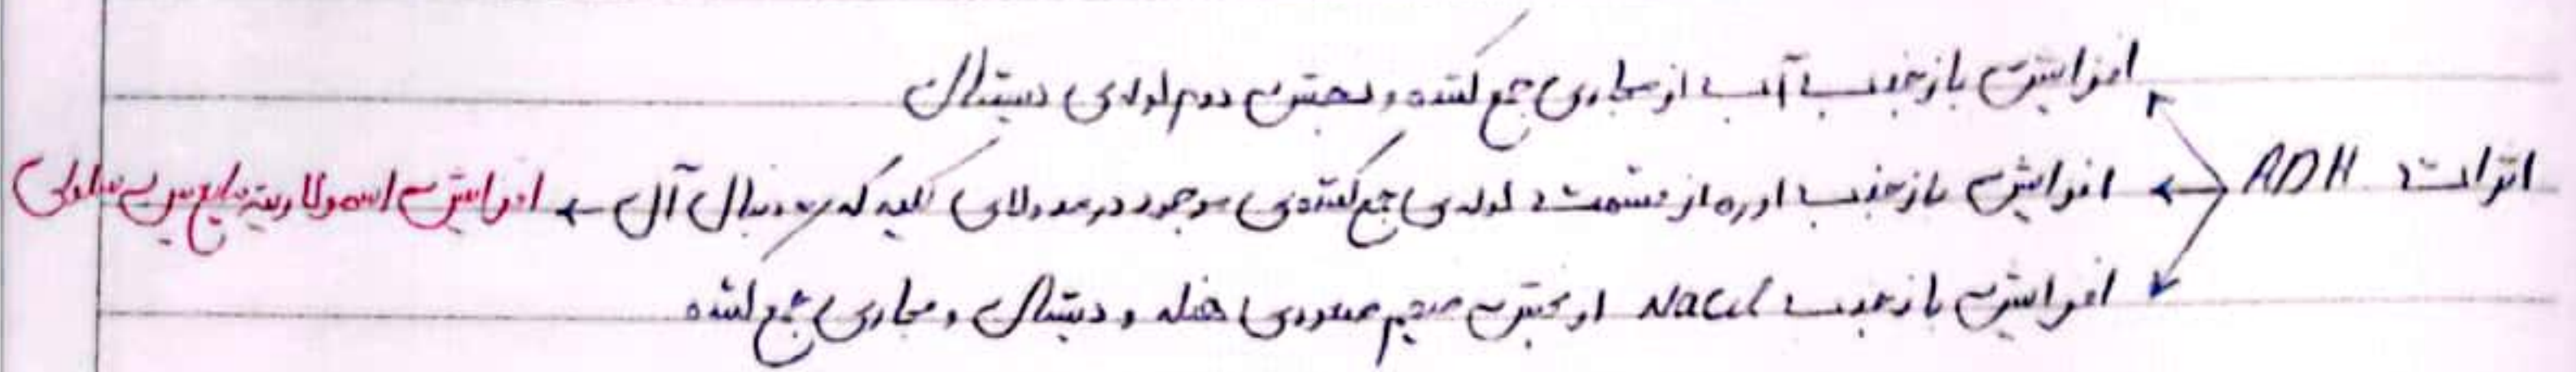 افزایش بازجذب آب از مجاری جمع کننده و بخش دوم لوله‌ی دیستال
اثرات ADH
افزایش بازجذب اوره از قسمت لوله‌ی جمع کننده‌ی موجود در مدولای کلیه که به دنبال آن ← افزایش اسمولاریته مایع بین سلولی
افزایش بازجذب NaCl از بخش ضخیم صعودی هنله و دیستال و مجاری جمع کننده